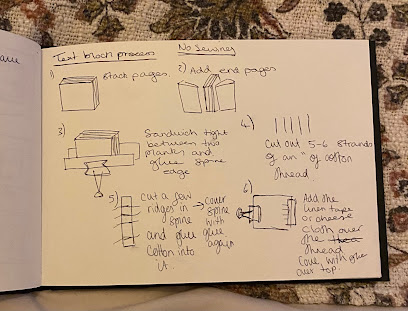 Text block process No Sewing
1) Stack pages.
2) Add end pages
3) Sandwich tight
between two
planks and
glue spine
edge
4)
Cut out 5-6 strands
of an " of cotton
thread
5) cut a few
ridges in
spine
and glue
cotton into
it.
→ cover
spine
with
glue
again
6)
Add the
linen tape
or cheese
cloth over
the
thread
Cover with glue
over top.